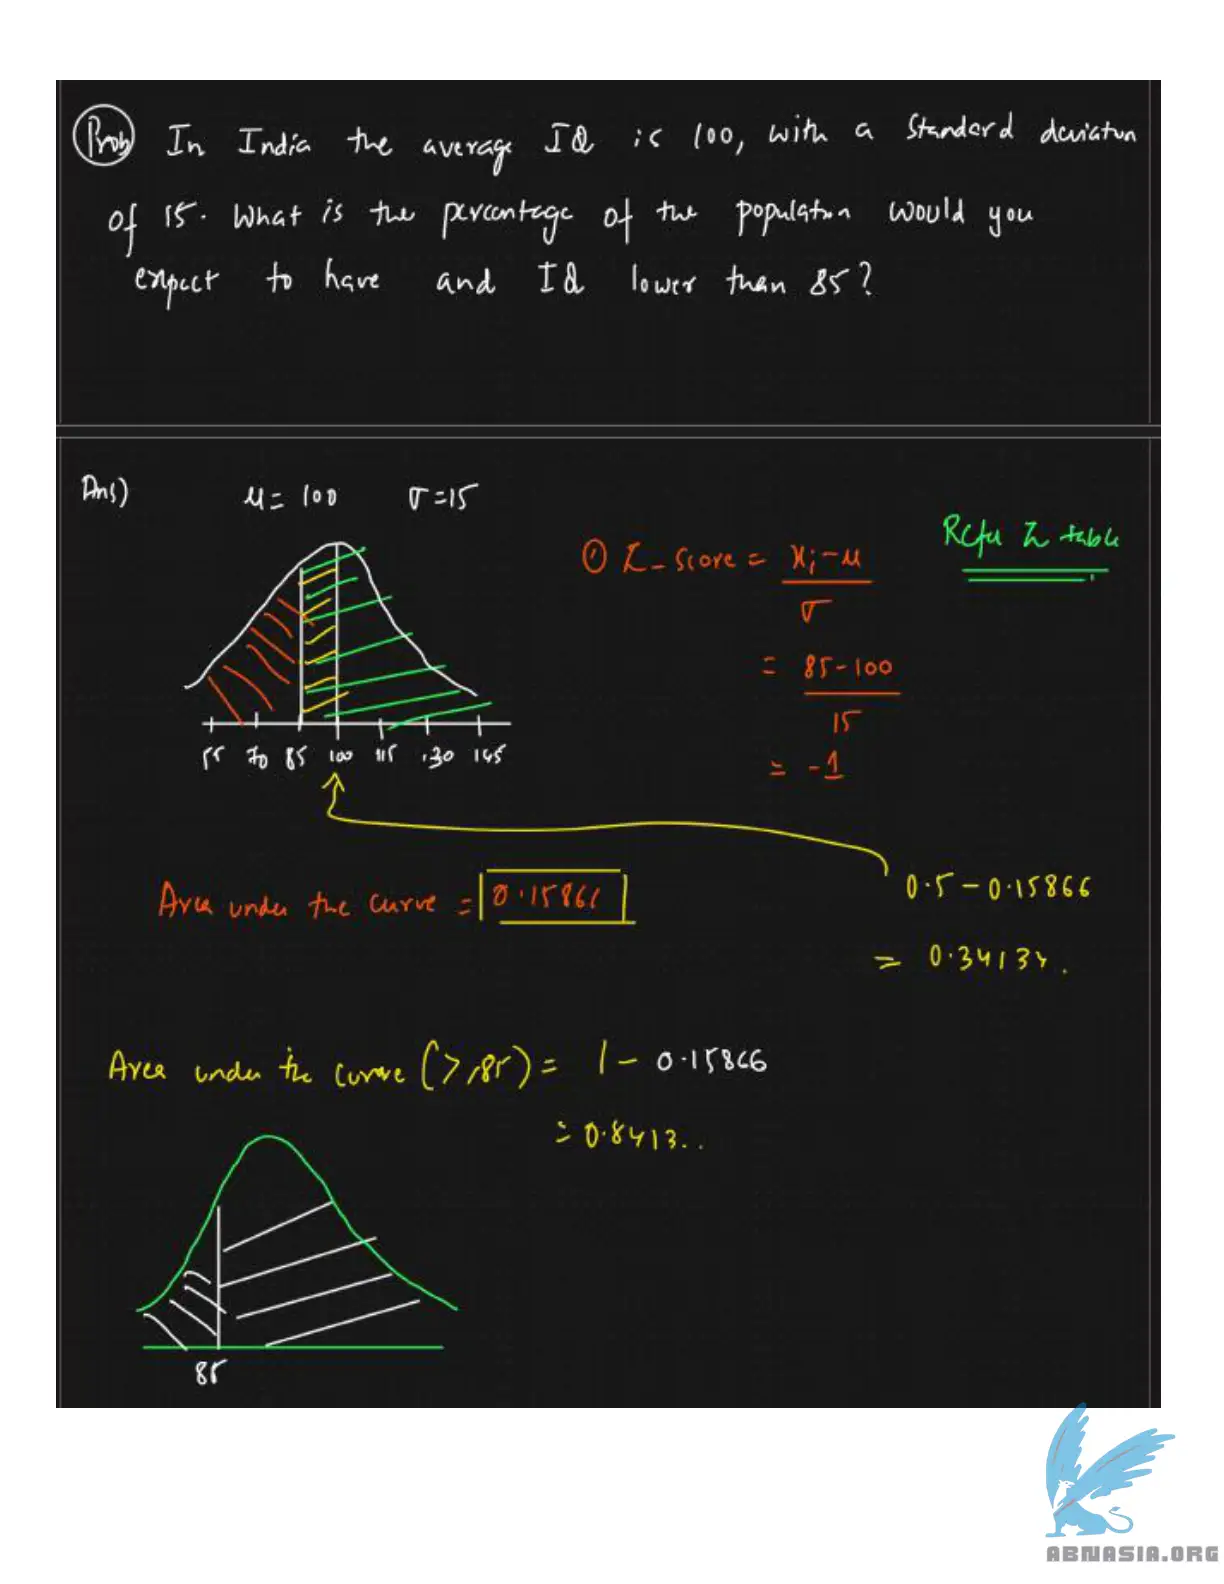 Prob In India the average IQ is 100, with a Standard deviation
of 15. What is the percentage of the population would you
expect to have and IQ lower than 85?
Ans) μ = 100 σ = 15
Refer Z table
① Z-score = xi - μ
σ
= 85 - 100
15
= -1
55 70 85 100 115 130 145
Area under the curve = 0.15866
0.5 - 0.15866
= 0.34134.
Area under the curve (>85) = 1 - 0.15866
= 0.8413..
85
ABNASIA.ORG